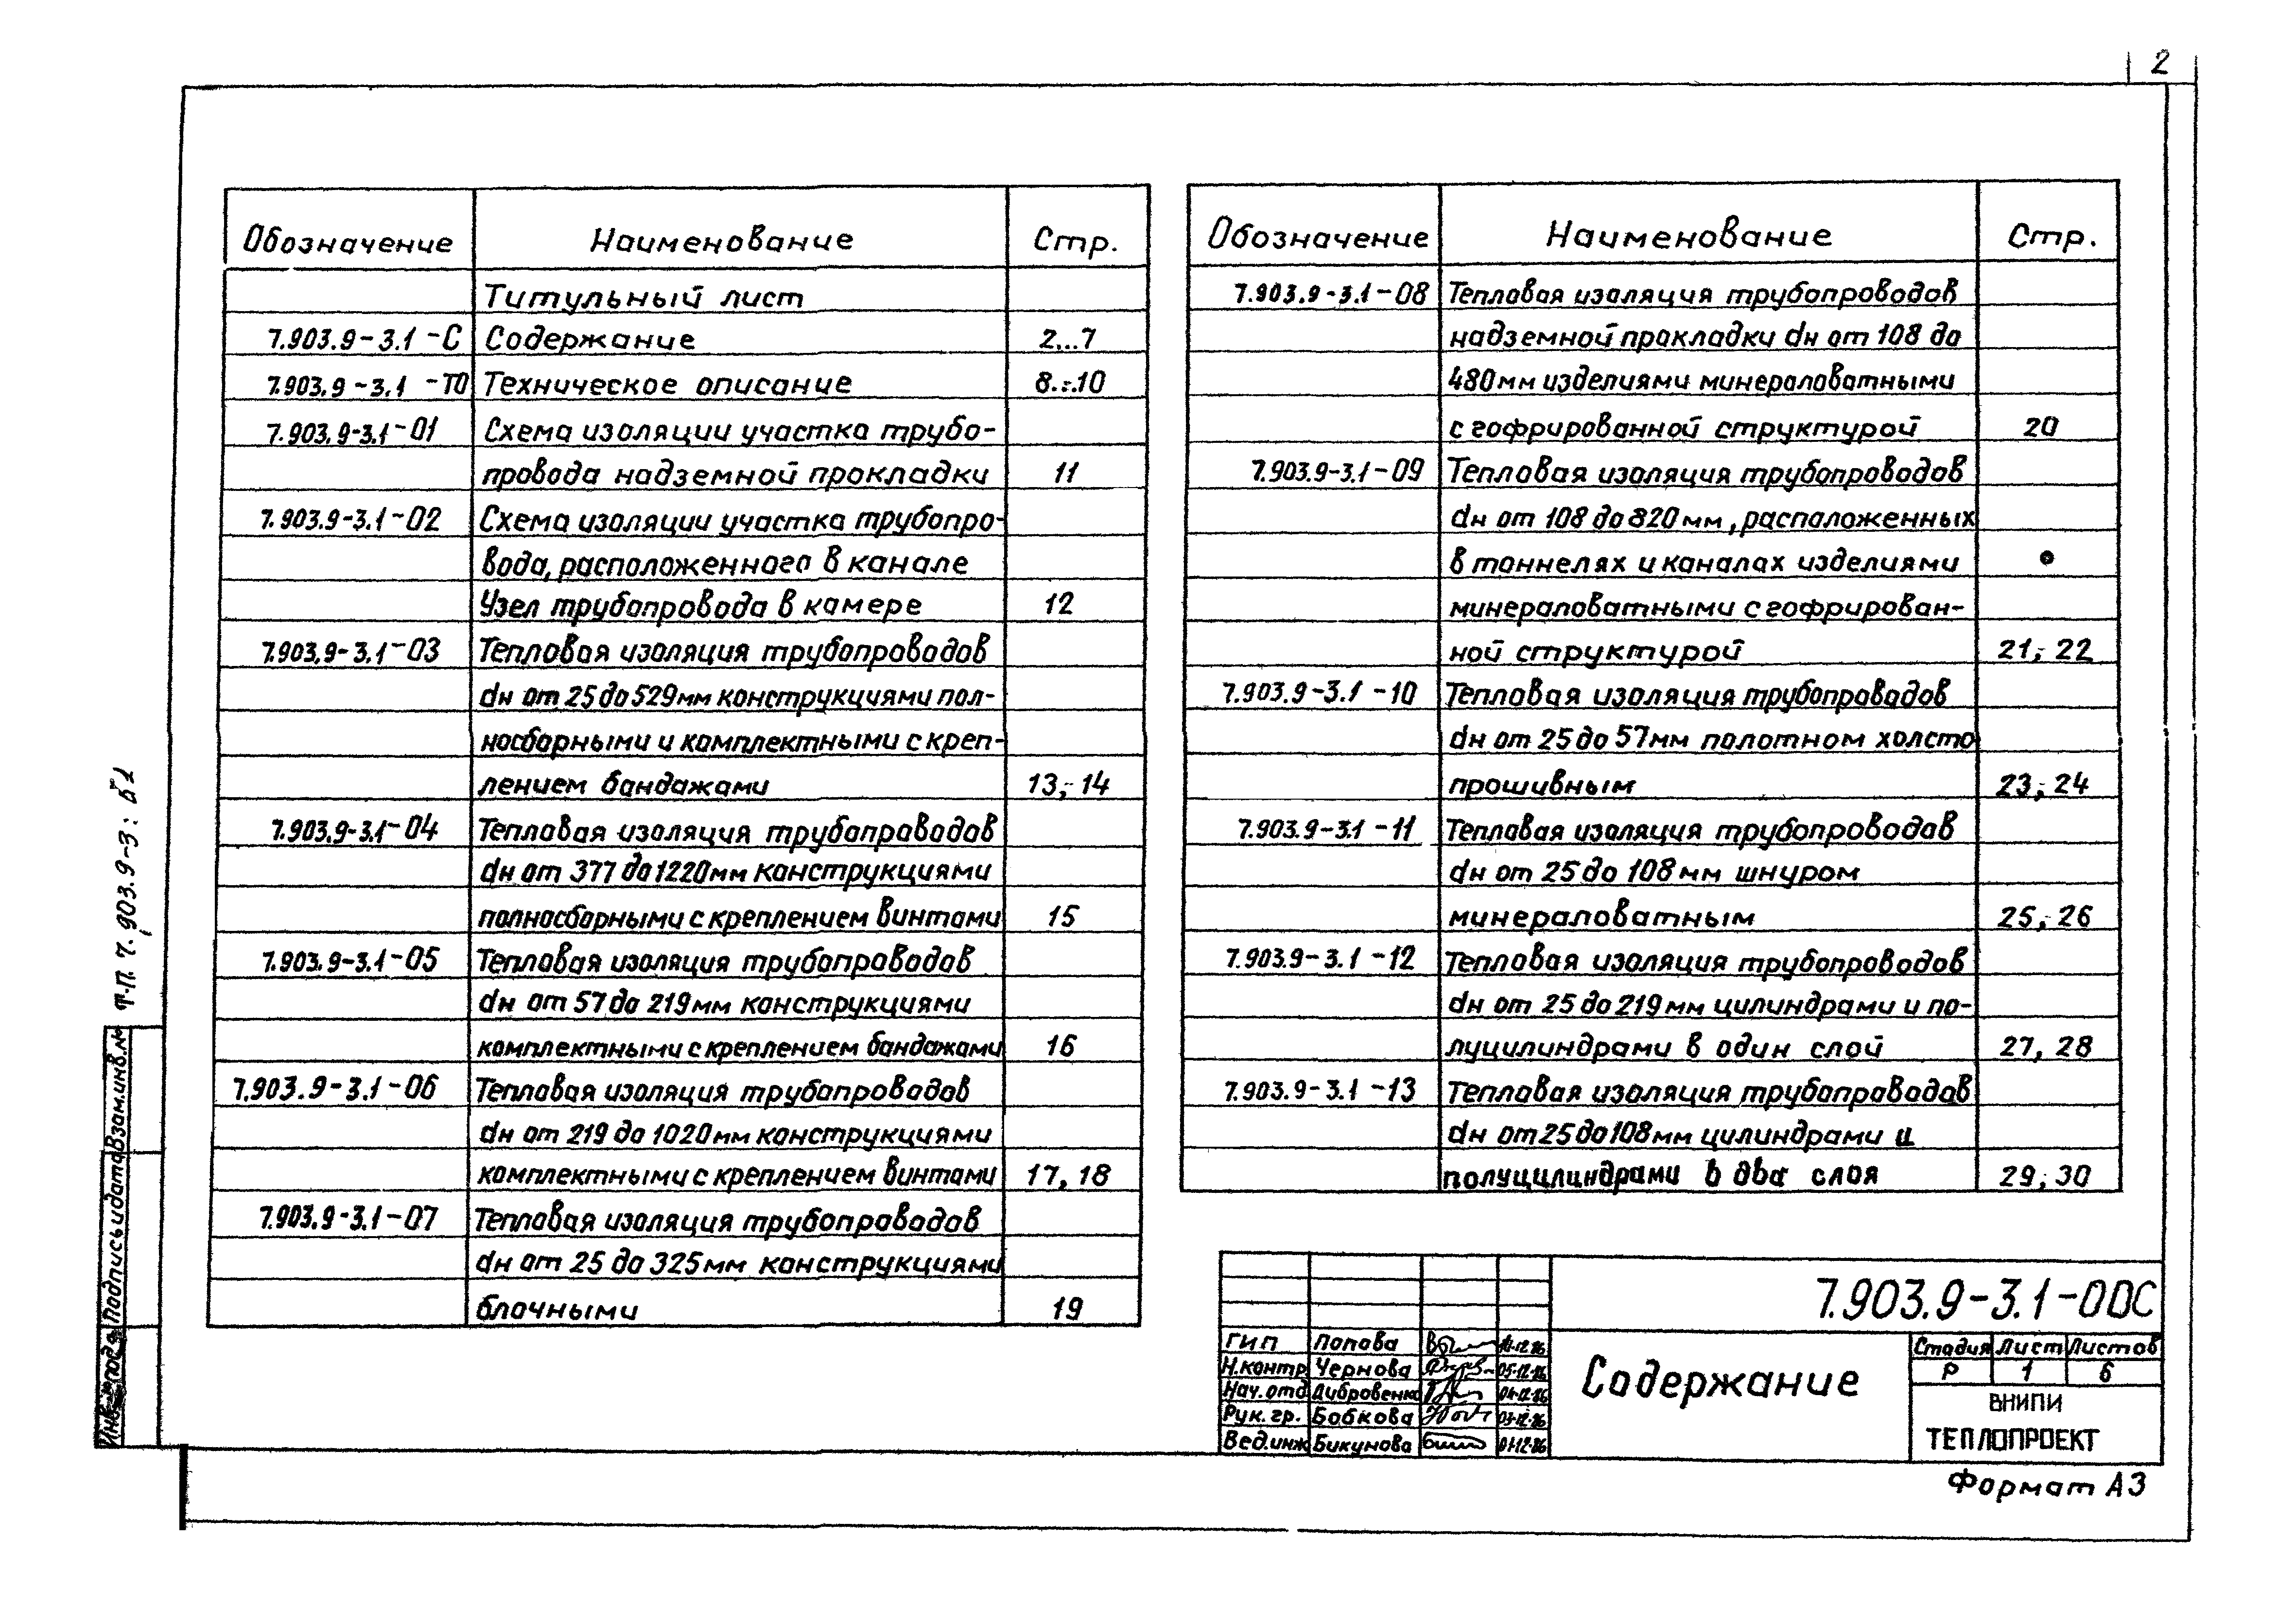 2
Обозначение Наименование Стр.
Титульный лист
7.903.9-3.1-С Содержание 2...7
7.903.9-3.1-ТО Техническое описание 8...10
7.903.9-3.1-01 Схема изоляции участка трубо-
провода надземной прокладки 11
7.903.9-3.1-02 Схема изоляции участка трубопро-
вода, расположенного в канале
Узел трубопровода в камере 12
7.903.9-3.1-03 Тепловая изоляция трубопроводов
dн от 25 до 529мм конструкциями пол-
носборными и комплектными с креп-
лением бандажами 13; 14
7.903.9-3.1-04 Тепловая изоляция трубопроводов
dн от 377 до 1220мм конструкциями
полносборными с креплением винтами 15
7.903.9-3.1-05 Тепловая изоляция трубопроводов
dн от 57 до 219мм конструкциями
комплектными с креплением бандажами 16
7.903.9-3.1-06 Тепловая изоляция трубопроводов
dн от 219 до 1020мм конструкциями
комплектными с креплением винтами 17, 18
7.903.9-3.1-07 Тепловая изоляция трубопроводов
dн от 25 до 325мм конструкциями
блочными 19
Обозначение Наименование Стр.
7.903.9-3.1-08 Тепловая изоляция трубопроводов
надземной прокладки dн от 108 до
480мм изделиями минераловатными
с гофрированной структурой 20
7.903.9-3.1-09 Тепловая изоляция трубопроводов
dн от 108 до 820мм, расположенных
в тоннелях и каналах изделиями
минераловатными с гофрирован-
ной структурой 21; 22
7.903.9-3.1-10 Тепловая изоляция трубопроводов
dн от 25 до 57мм полотном холсто
прошивным 23; 24
7.903.9-3.1-11 Тепловая изоляция трубопроводов
dн от 25 до 108мм шнуром
минераловатным 25; 26
7.903.9-3.1-12 Тепловая изоляция трубопроводов
dн от 25 до 219мм цилиндрами и по-
луцилиндрами в один слой 27, 28
7.903.9-3.1-13 Тепловая изоляция трубопроводов
dн от 25 до 108мм цилиндрами и
полуцилиндрами в два слоя 29; 30
7.903.9-3.1-00С
ГИП Попова
Н.контр. Чернова 05.12.86
Нач.отд. Дубровенко 04.12.86
Рук.гр. Бобкова 03.12.86
Вед.инж Бикунова 01.12.86
Содержание
Стадия Лист Листов
Р 1 6
ВНИПИ
ТЕПЛОПРОЕКТ
Формат А3
Т.П. 7.903.9-3:
Взам.инв.№
Подпись и дата
Инв.№ подл.